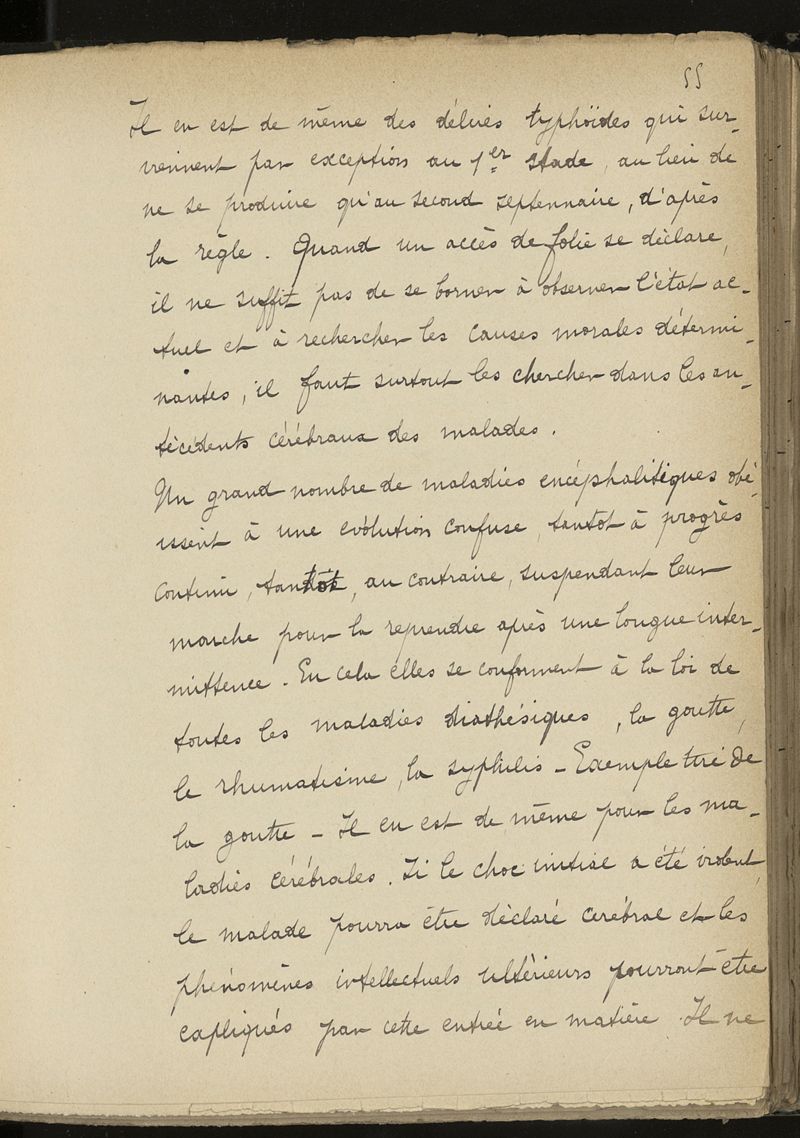 55
Il en est de même des délires typhoïdes qui sur-
viennent par exception au 1er stade, au lieu de
ne se produire qu'au second septennaire, d'après
la règle. Quand un accès de folie se déclare,
il ne suffit pas de se borner à observer l'état ac-
tuel et à rechercher les causes morales détermi-
nantes, il faut surtout les chercher dans les an-
técédents cérébraux des malades.
Un grand nombre de maladies encéphalitiques obé-
issent à une évolution confuse, tantôt à progrès
continu, tantôt, au contraire, suspendant leur
marche pour la reprendre après une longue inter-
mittence. En cela elles se conforment à la loi de
toutes les maladies diathésiques, la goutte,
le rhumatisme, la syphilis - Exemple tiré de
la goutte - Il en est de même pour les ma-
ladies cérébrales. Si le choc initial a été violent,
le malade pourra être déclaré cérébral et les
phénomènes intellectuels ultérieurs pourront être
expliqués par cette entrée en matière. Il ne